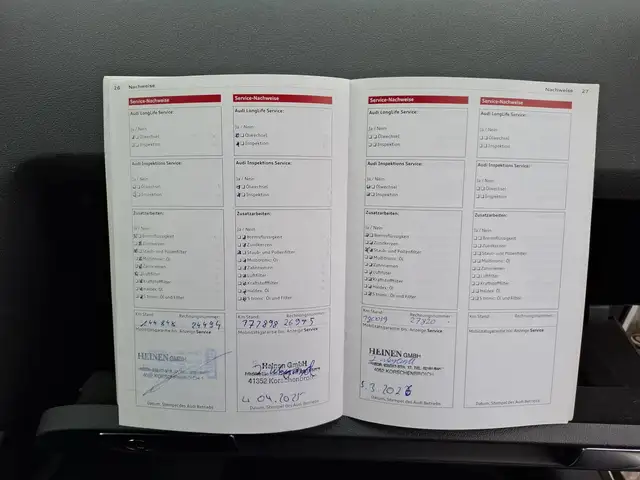 26 Nachweise
Service-Nachweise
Audi LongLife Service:
Ja / Nein
Ölwechsel
Inspektion
Audi Inspektions Service:
Ja / Nein
Ölwechsel
Inspektion
Zusatzarbeiten:
Ja / Nein
Bremsflüssigkeit
Zündkerzen
Staub- und Pollenfilter
Multitronic-Öl
Zahnriemen
Luftfilter
Kraftstofffilter
Haldex-Öl
S tronic-Öl und Filter
Km-Stand: Rechnungsnummer:
24494
Mobilitätsgarantie bis: Anzeige Service
HEINEN GMBH
Datum, Stempel des Audi Betriebs
Service-Nachweise
Audi LongLife Service:
Ja / Nein
Ölwechsel
Inspektion
Audi Inspektions Service:
Ja / Nein
Ölwechsel
Inspektion
Zusatzarbeiten:
Ja / Nein
Bremsflüssigkeit
Zündkerzen
Staub- und Pollenfilter
Multitronic-Öl
Zahnriemen
Luftfilter
Kraftstofffilter
Haldex-Öl
S tronic-Öl und Filter
Km-Stand: Rechnungsnummer:
177898 26945
Mobilitätsgarantie bis: Anzeige Service
Heinen GmbH
41352 Korschenbroich
04.2025
Datum, Stempel des Audi Betriebs
Nachweise 27
Service-Nachweise
Audi LongLife Service:
Ja / Nein
Ölwechsel
Inspektion
Audi Inspektions Service:
Ja / Nein
Ölwechsel
Inspektion
Zusatzarbeiten:
Ja / Nein
Bremsflüssigkeit
Zündkerzen
Staub- und Pollenfilter
Multitronic-Öl
Zahnriemen
Luftfilter
Kraftstofffilter
Haldex-Öl
S tronic-Öl und Filter
Km-Stand: Rechnungsnummer:
27820
Mobilitätsgarantie bis: Anzeige Service
HEINEN GMBH
41352 KORSCHENBROICH
3.2026
Datum, Stempel des Audi Betriebs
Service-Nachweise
Audi LongLife Service:
Ja / Nein
Ölwechsel
Inspektion
Audi Inspektions Service:
Ja / Nein
Ölwechsel
Inspektion
Zusatzarbeiten:
Ja / Nein
Bremsflüssigkeit
Zündkerzen
Staub- und Pollenfilter
Multitronic-Öl
Zahnriemen
Luftfilter
Kraftstofffilter
Haldex-Öl
S tronic-Öl und Filter
Km-Stand: Rechnungsnummer:
Mobilitätsgarantie bis: Anzeige Service
Datum, Stempel des Audi Betriebs